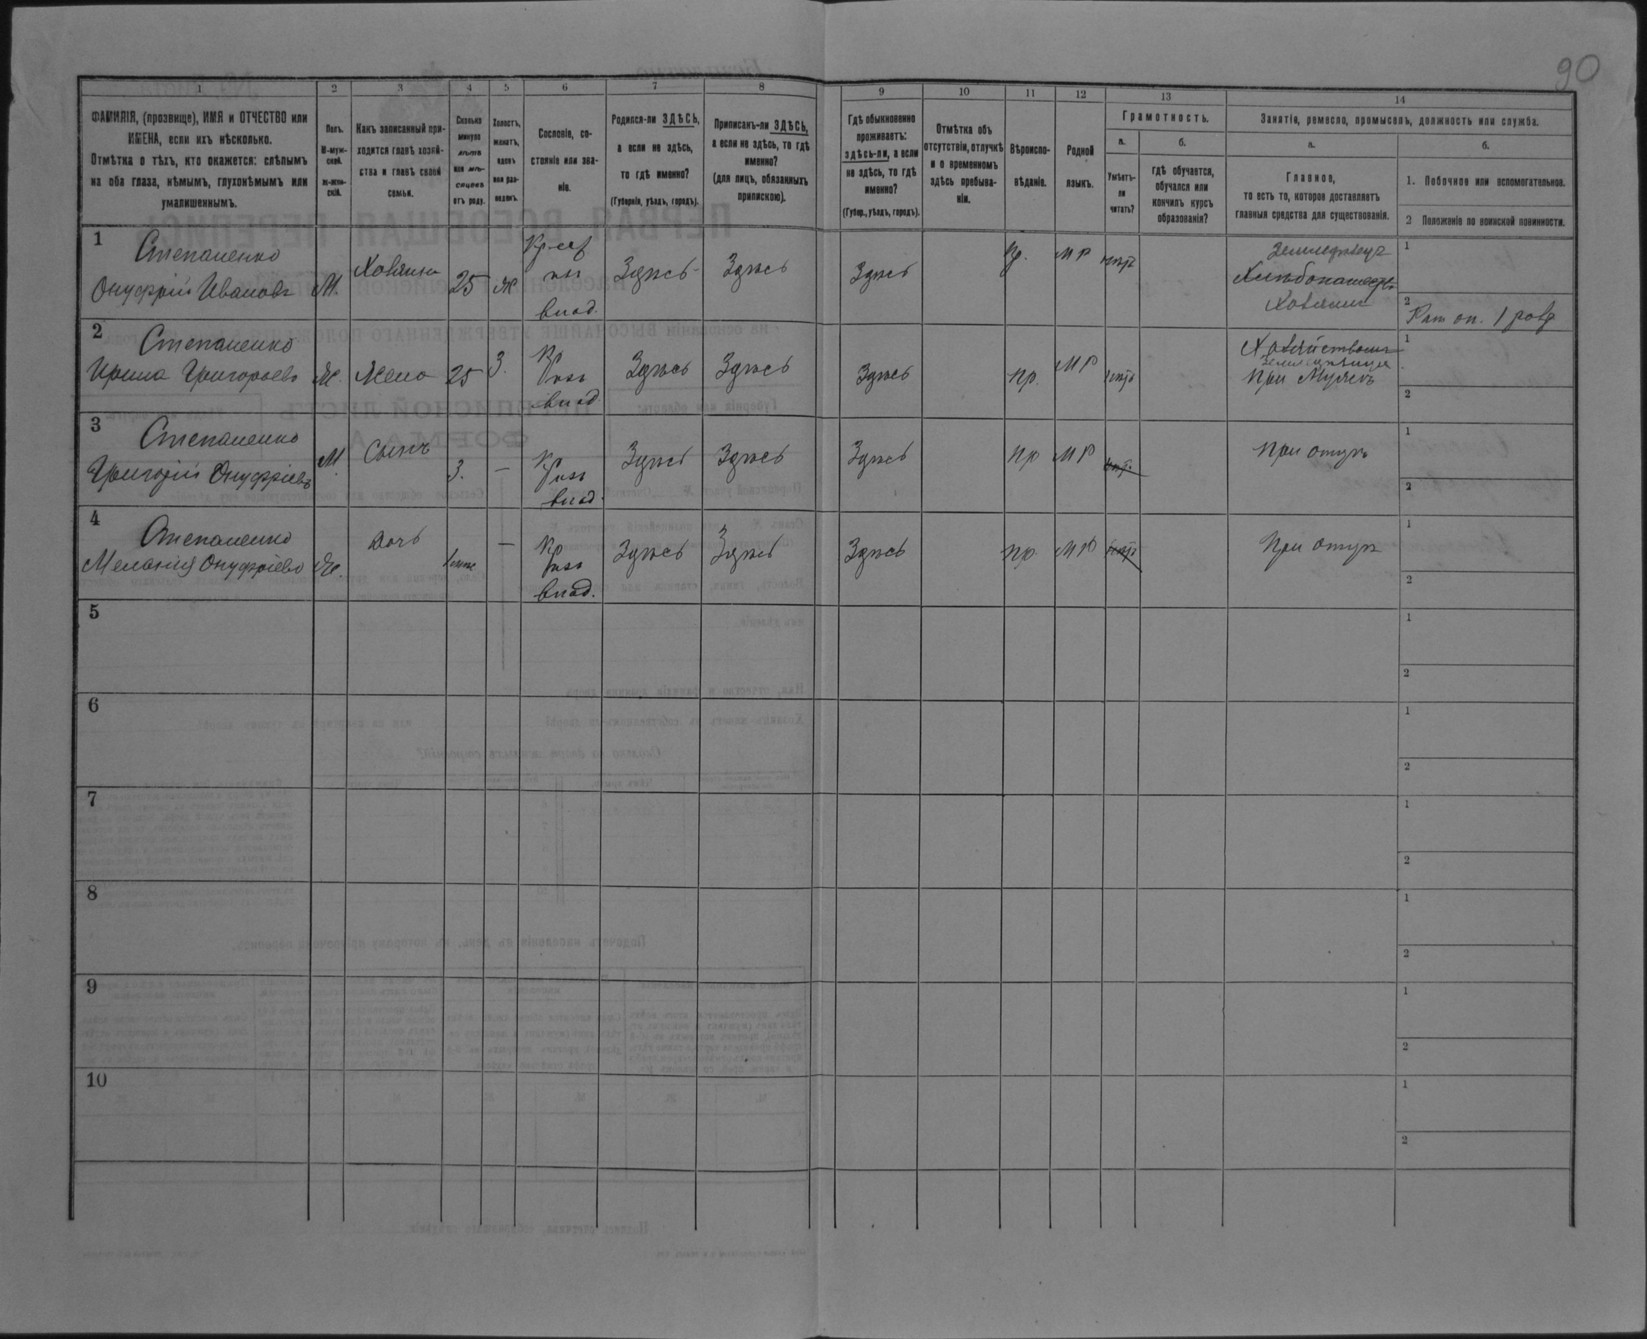 90
1 2 3 4 5 6 7 8 9 10 11 12 13 14
ФАМИЛІЯ, (прозвище), ИМЯ и ОТЧЕСТВО или
ИМЕНА, если ихъ нѣсколько.
Отмѣтка о тѣхъ, кто окажется: слѣпымъ
на оба глаза, нѣмымъ, глухонѣмымъ или
умалишеннымъ.
Полъ.
М-муж-
ской.
Ж-жен-
скій.
Какъ записанный при-
ходится главѣ хозяй-
ства и главѣ своей
семьи.
Сколько
минуло
лѣтъ
или мѣ-
сяцевъ
отъ роду.
Холостъ,
женатъ,
вдовъ
или раз-
веденъ.
Сословіе, со-
стояніе или зва-
ніе.
Родился-ли ЗДѢСЬ,
а если не здѣсь,
то гдѣ именно?
(Губернія, уѣздъ, городъ).
Приписанъ-ли ЗДѢСЬ,
а если не здѣсь, то гдѣ
именно?
(для лицъ, обязанныхъ
припискою).
Гдѣ обыкновенно
проживаетъ:
здѣсь-ли, а если
не здѣсь, то гдѣ
именно?
(Губер., уѣздъ, городъ).
Отмѣтка объ
отсутствіи, отлучкѣ
и о временномъ
здѣсь пребыва-
ніи.
Вѣроиспо-
вѣданіе.
Родной
языкъ.
Грамотность.
а.
Умѣетъ-
ли
читать?
б.
гдѣ обучается,
обучался или
кончилъ курсъ
образованія?
Занятія, ремесло, промыселъ, должность или служба.
а.
Главное,
то есть то, которое доставляетъ
главныя средства для существованія.
б.
1. Побочное или вспомогательное.
2 Положеніе по воинской повинности.
1
Степаненко
Онуфрій Ивановъ
М.
Хозяинъ
25
Ж
влад.
Здѣсь
Здѣсь
Здѣсь
Пр.
МР
нѣтъ
Земледѣлецъ
Хозяинъ
1
2
Рат оп. 1 разр
2
Степаненко
Ирина Григорьева
Ж.
Жена
25
З.
Кр
влад.
Здѣсь
Здѣсь
Здѣсь
Пр.
МР
нѣтъ
При Мужѣ
1
2
3
Степаненко
Григорій Онуфріевъ
М.
Сынъ
3.
—
Кр
влад.
Здѣсь
Здѣсь
Здѣсь
Пр
МР
нѣтъ
При отцѣ
1
2
4
Степаненко
Меланія Онуфріева
Ж.
Дочь
—
Кр
влад.
Здѣсь
Здѣсь
Здѣсь
Пр.
МР
нѣтъ
При отцѣ
1
2
5
1
2
6
1
2
7
1
2
8
1
2
9
1
2
10
1
2